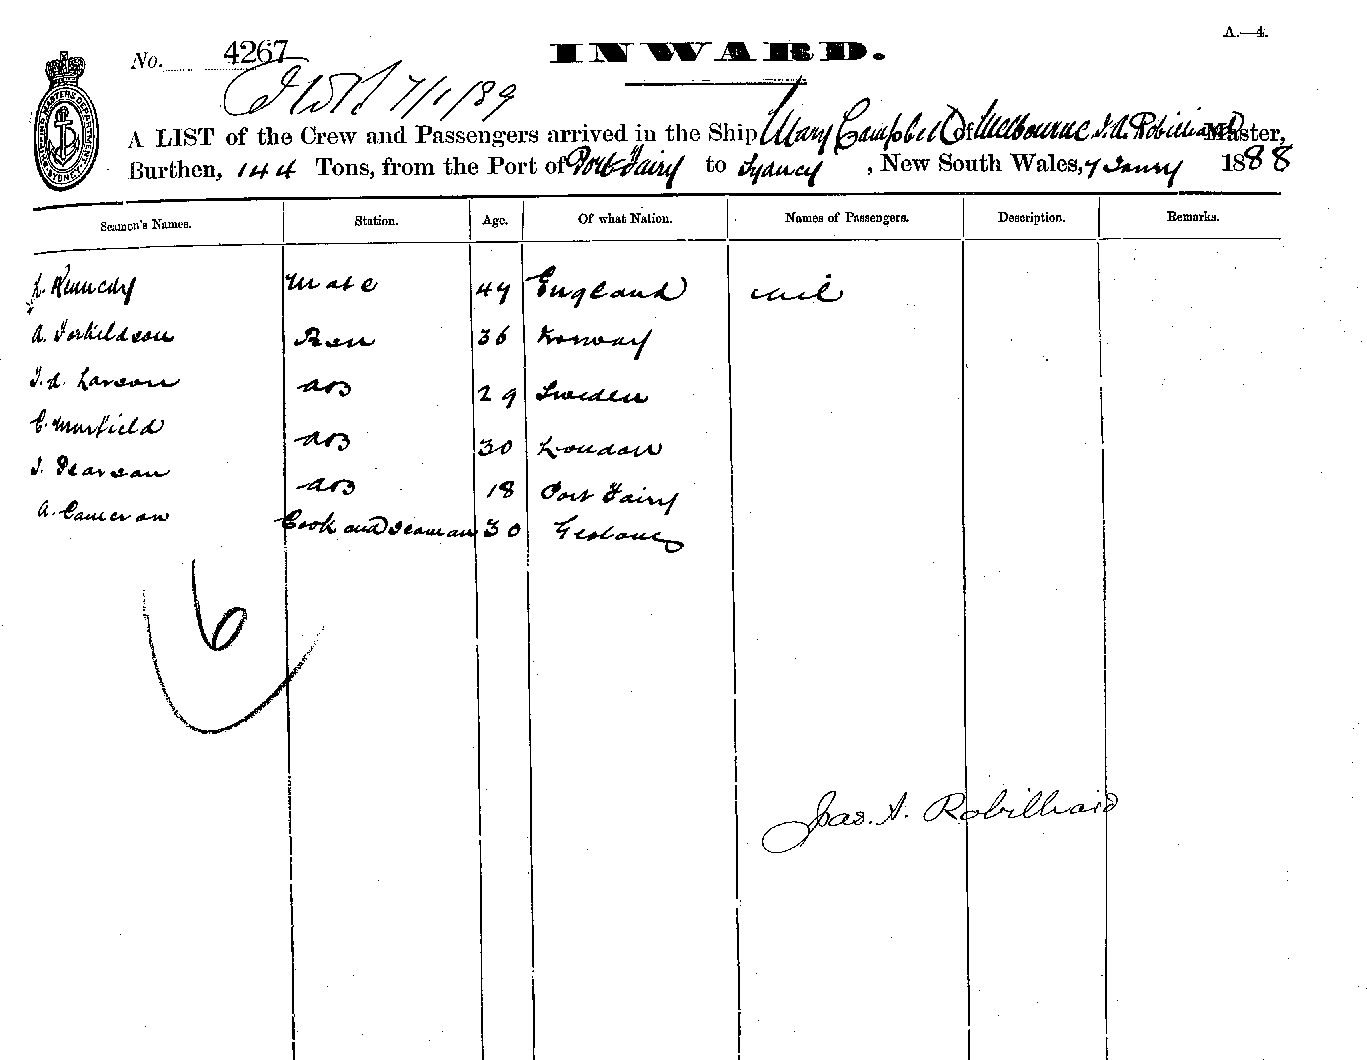 A.—4.
No. 4267
INWARD.
7/1/89
A LIST of the Crew and Passengers arrived in the Ship Mary Campbell of Melbourne J. A. Robilliard Master,
Burthen, 144 Tons, from the Port of Port Fairy to Sydney, New South Wales, 7 Janry 1888
Seamen's Names. Station. Age. Of what Nation. Names of Passengers. Description. Remarks.
Kennedy Mate 47 England nil
A. Torkildson 36 Norway
J. A. Larson AB 29 Sweden
C. Murfield AB 30 London
J. Pearson AB 18 Port Fairy
A. Cameron Cook and Seaman 30
6
Jas. A. Robilliard